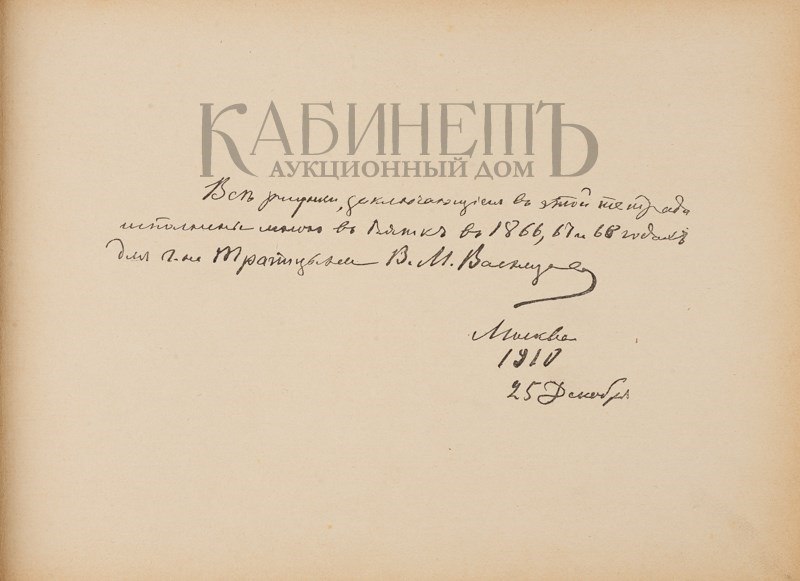 КАБИНЕТЪ
АУКЦИОННЫЙ ДОМ
Всѣ рисунки, заключающiеся въ этой тетради
исполнены мною въ Вяткѣ въ 1866, 67 и 68 годахъ
для г-на В. М. Васнецов
Москва
1910
25 Декабря